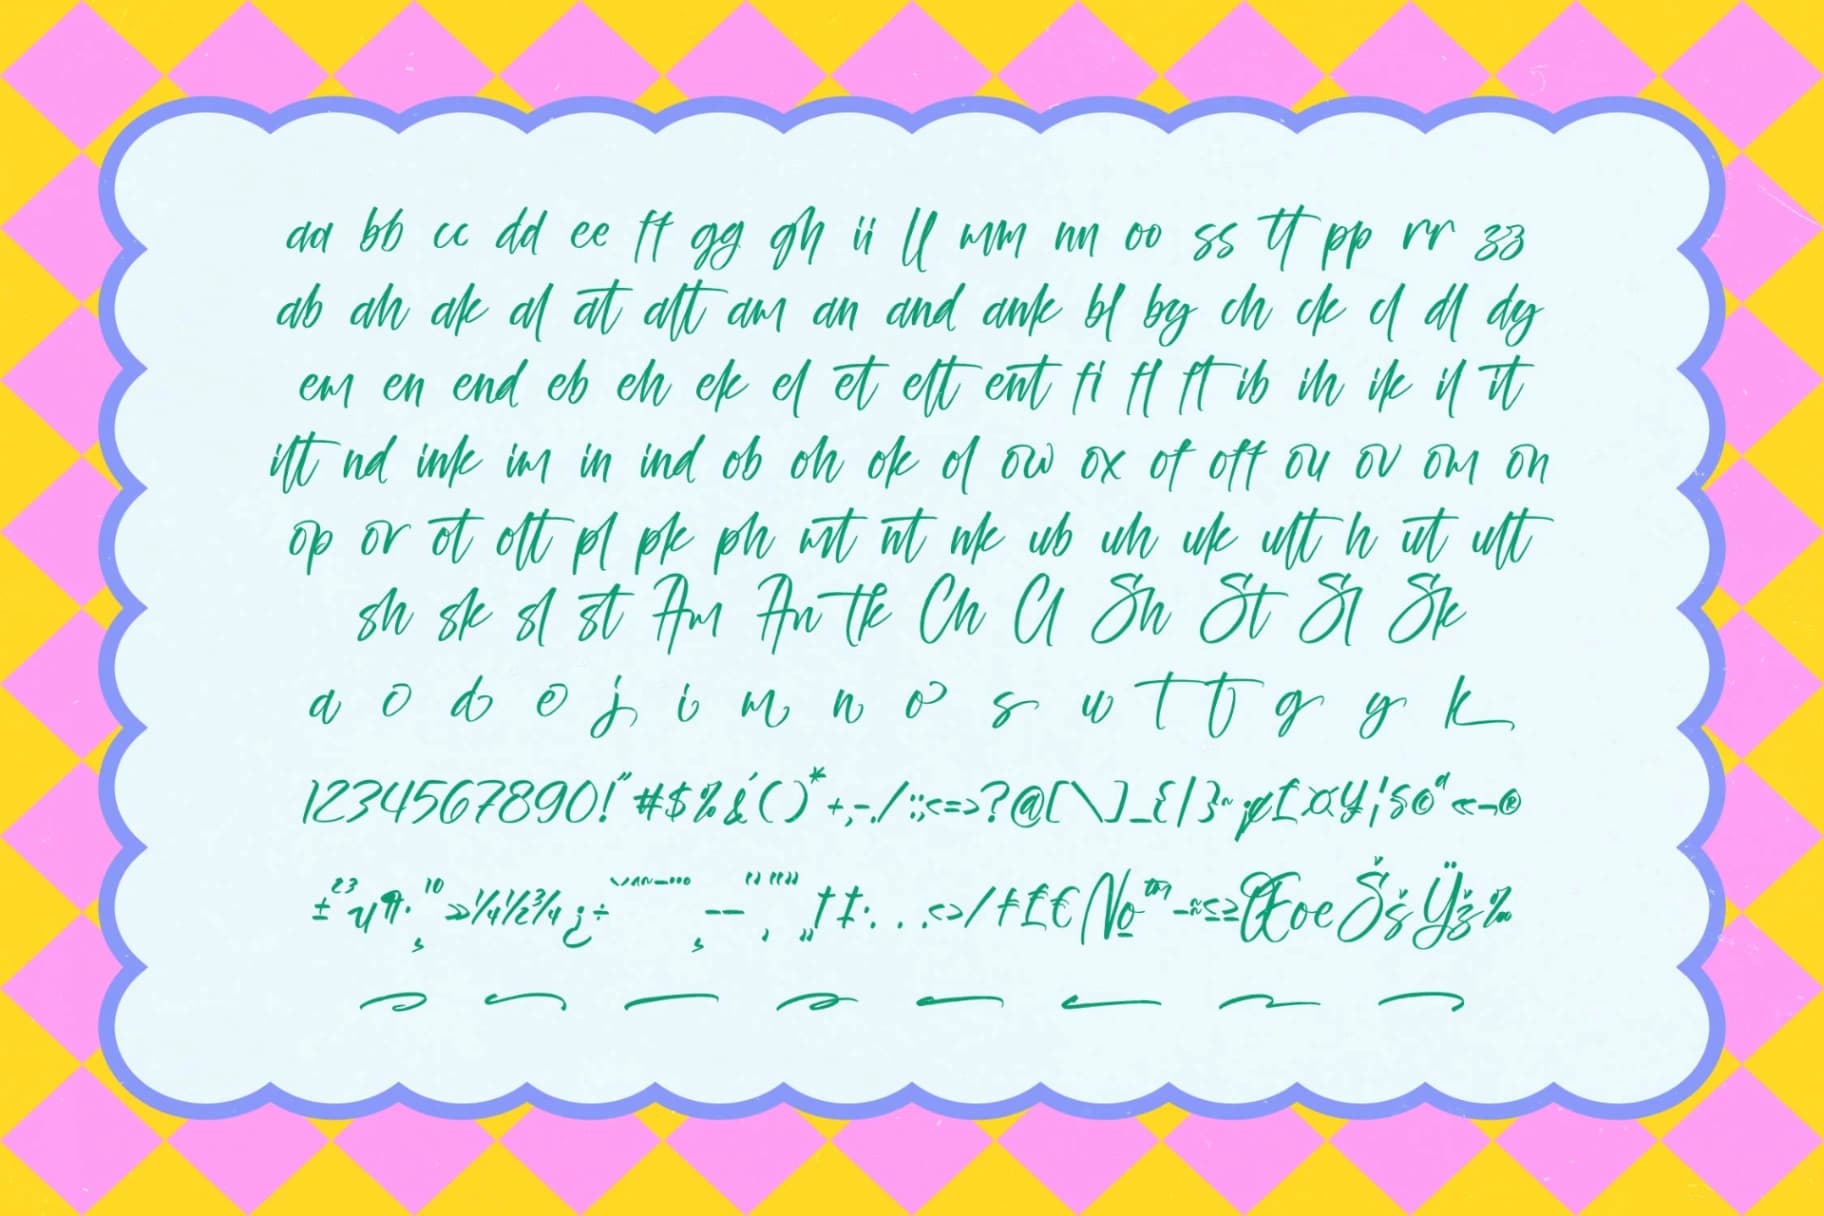 aa bb cc dd ee ff gg gh ii ll mm nn oo ss tt pp rr zz
ab ah ak al at alt am an and ank bl by ch ck cl dl dy
em en end eb eh ek el et elt ent fi fl ft ib ih ik il it
ilt nd ink im in ind ob oh ok ol ow ox of off ou ov om on
op or ot olt pl pk ph nt nk ub uh uk ult h ut ult
sh sk sl st Am An tk Ch Cl Sh St Sl Sk
a o d e j i m n o s w t t g y k
1234567890!"#$%&'()*+,-./:;<=>?@[\]_{|}~¡¢£¤¥¦§©ª«¬®
±²³µ¶·¸¹º»¼½¾¿÷ †‡•...‹›/₣₤€№™−≈≤≥ŒœŠšŸž‰